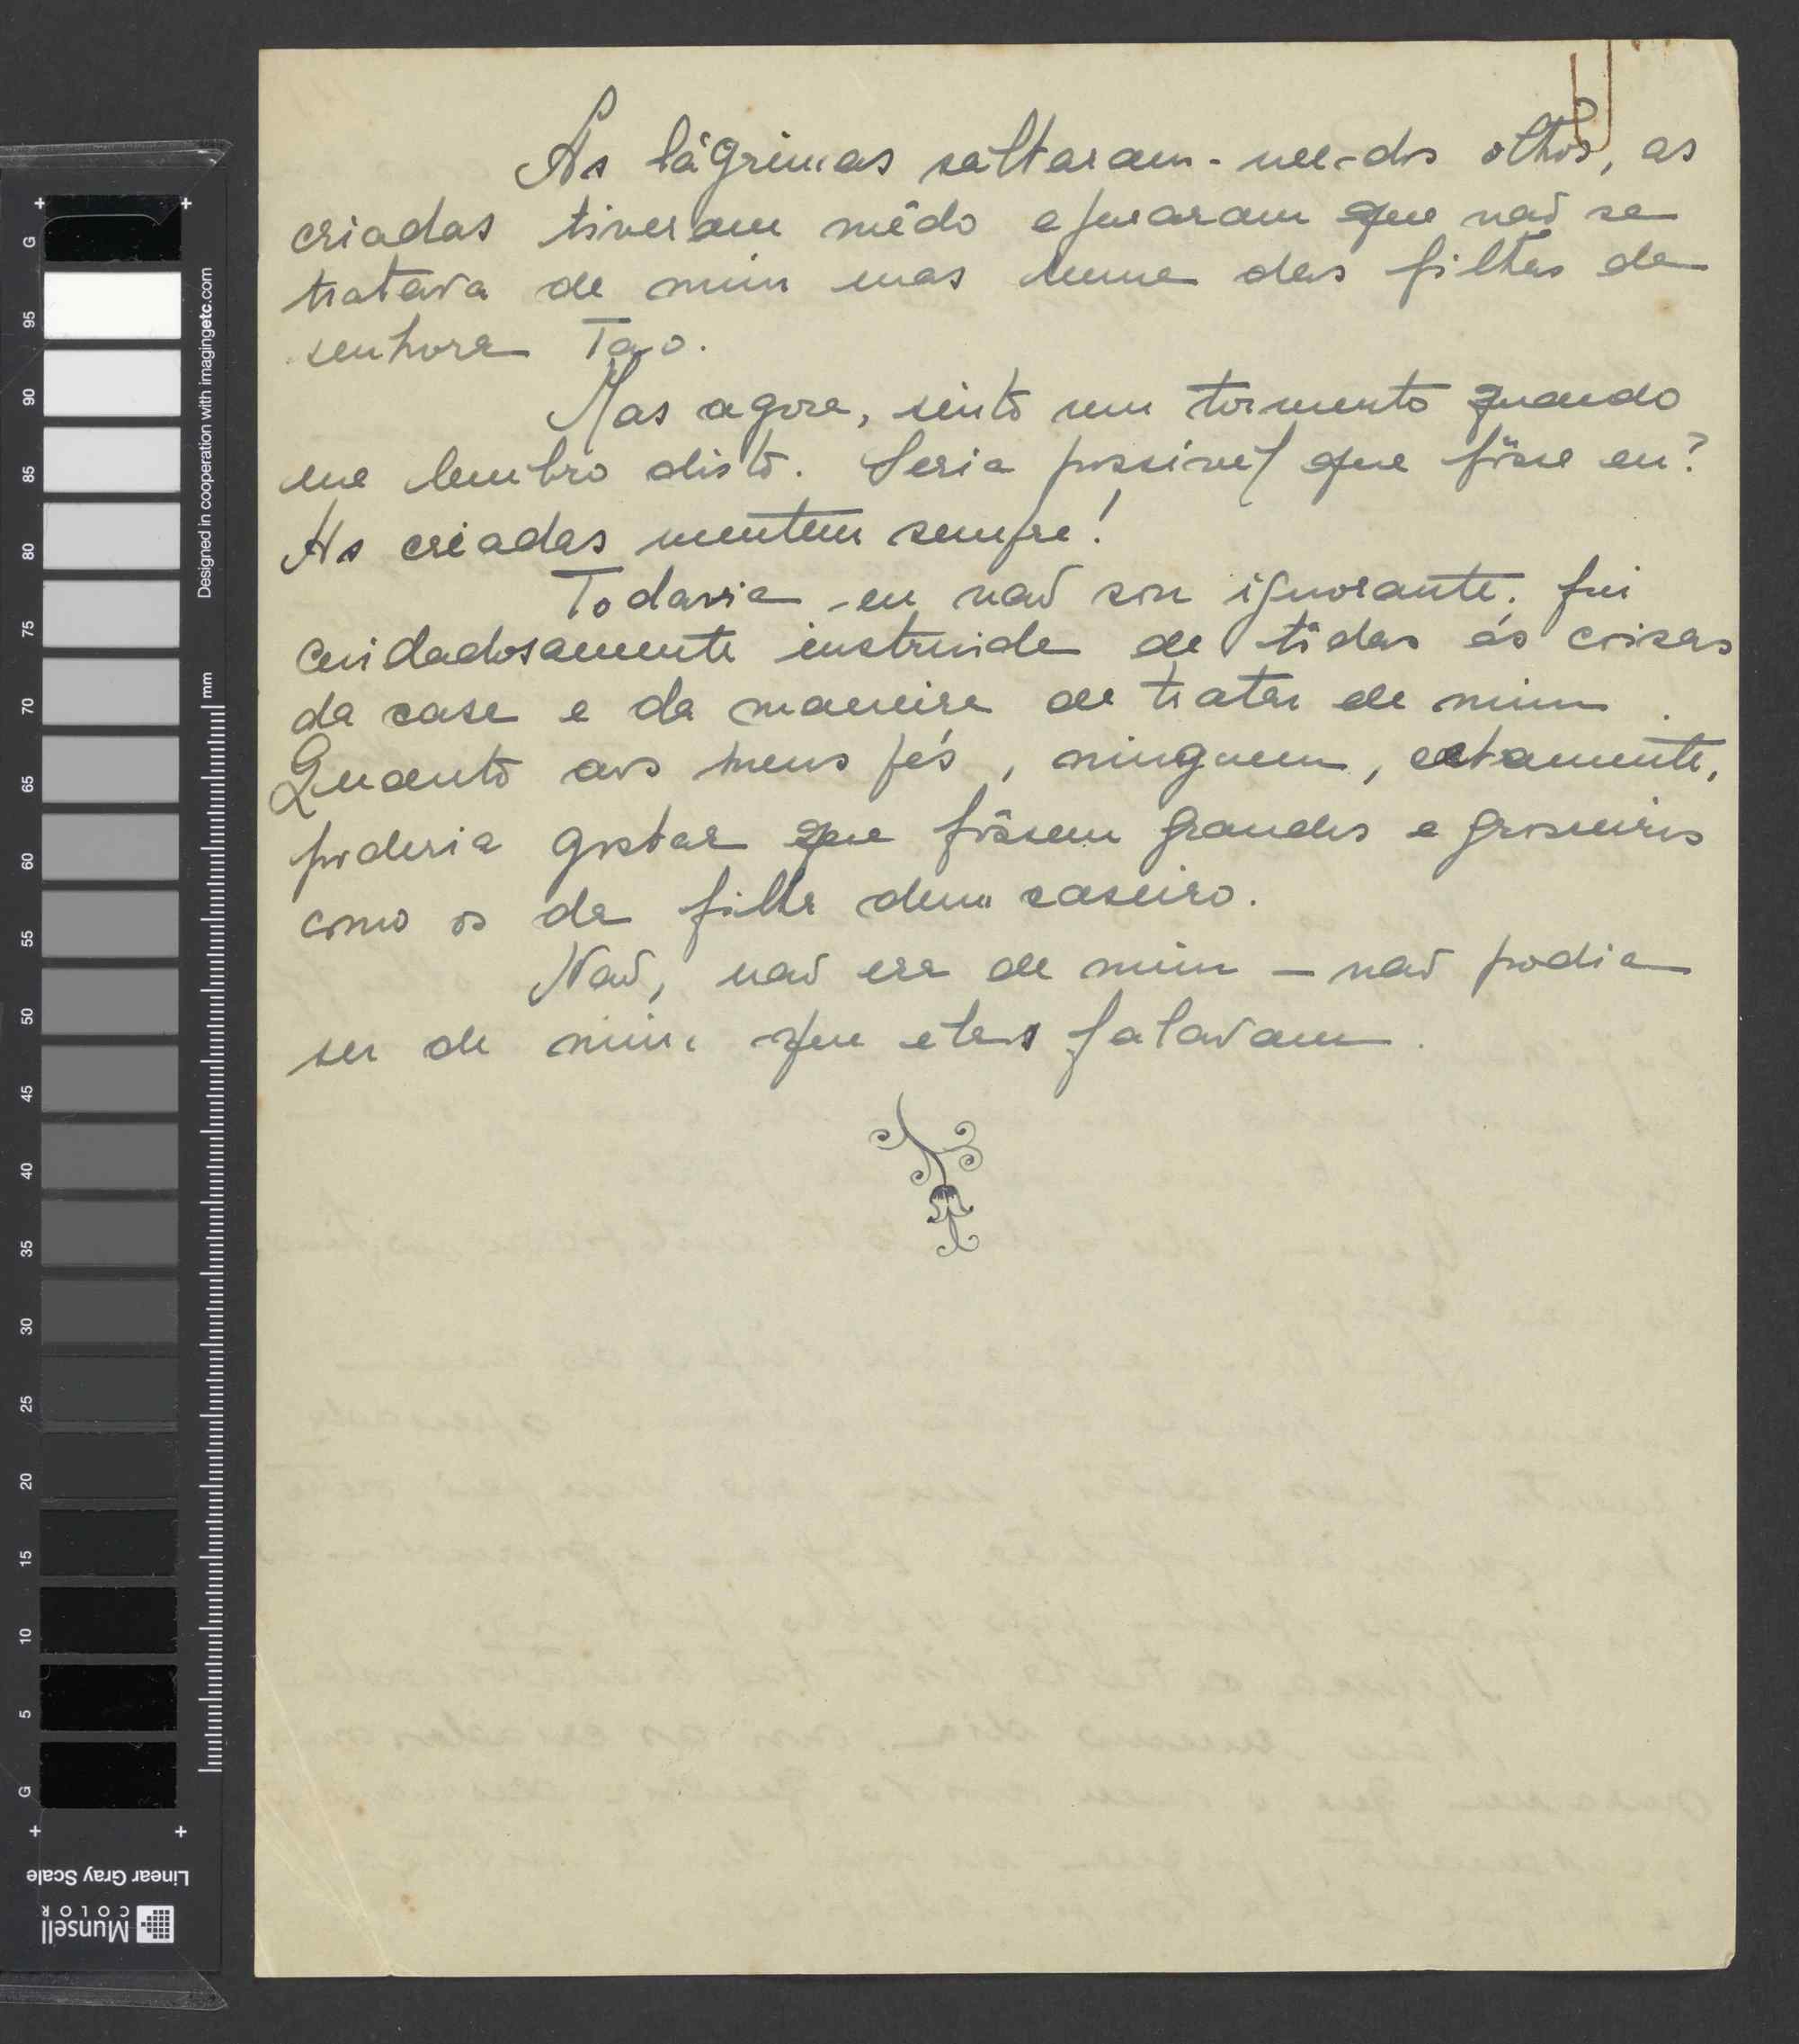 As lágrimas saltaram-me dos olhos, as
criadas tiveram mêdo e juraram que não se
tratava de mim mas duma das filhas da
senhora Tao.
Mas agora, sinto um tormento quando
me lembro disto. Seria possivel que fôsse eu?
As criadas mentem sempre!
Todavia eu não sou ignorante. fui
cuidadosamente instruida de tôdas as coisas
da casa e da maneira de tratar de mim.
Quanto aos meus pés, ninguem, certamente,
poderia gostar que fôssem grandes e grosseiros
como os da filha dum caseiro.
Não, não era de mim – não podia
ser de mim que elas falavam.
Designed in cooperation with imagingetc.com
mm
G 95 90 85 80 75 70 65 60 55 50 45 40 35 30 25 20 15 10 5 G
Linear Gray Scale
Munsell
COLOR